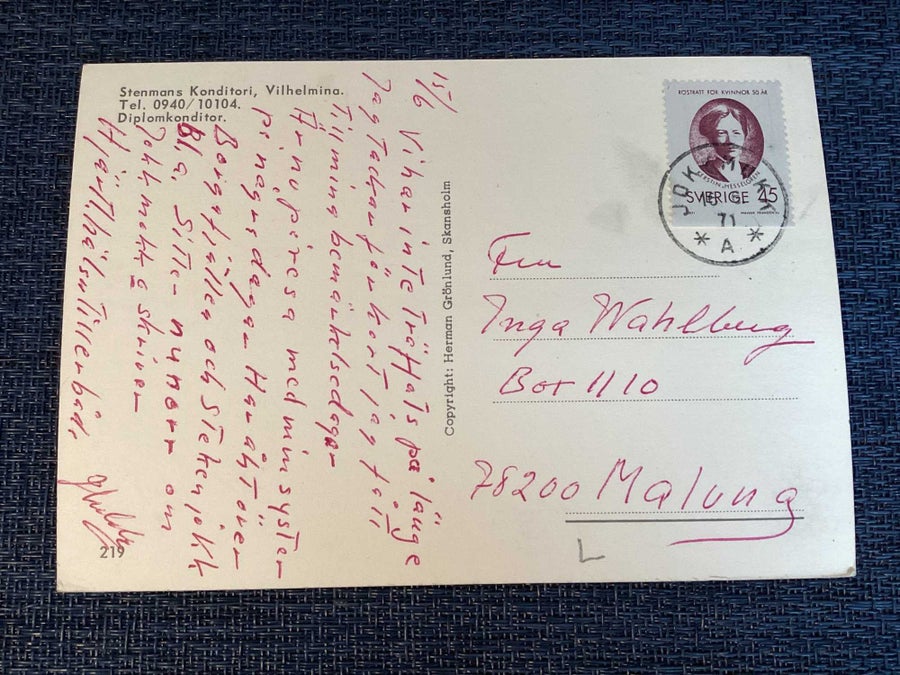 Stenmans Konditori, Vilhelmina.
Tel. 0940/10104.
Diplomkonditor.
15/6
Vi har inte träffats på länge
Jag tackar för kort jag fått
Till mina bemärkelsedagar
Är nu på resa med min syster
på några dagar Har åkt över
Borgafjället och Stekenjokk
Bl a. Sitter nu norr om
Jokkmokk & skriver
Hjärtl hälsn till er båda
219
Copyright: Herman Grönlund, Skansholm
RÖSTRÄTT FÖR KVINNOR 50 ÅR
KERSTIN HESSELGREN
SVERIGE 45
JOKKMOKK
71
* A *
Fru
Inga Wahlberg
Box 1110
78200 Malung
L